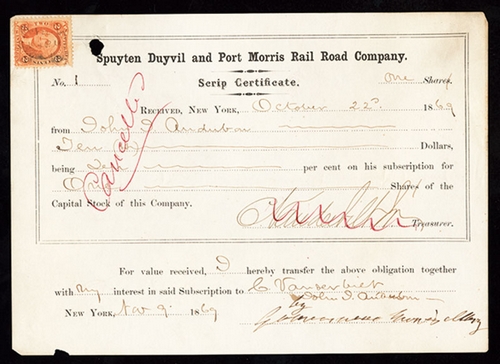 Spuyten Duyvil and Port Morris Rail Road Company.
No. 1 Scrip Certificate. One Share
RECEIVED, NEW YORK, October 22d. 1869
from John J Audubon
Ten Dollars,
being Ten per cent on his subscription for
One Shares of the
Capital Stock of this Company.
Treasurer.
Cancelled
For value received, I hereby transfer the above obligation together
with my interest in said Subscription to C Vanderbilt
John J. Audubon
NEW YORK, Nov 9 1869 by